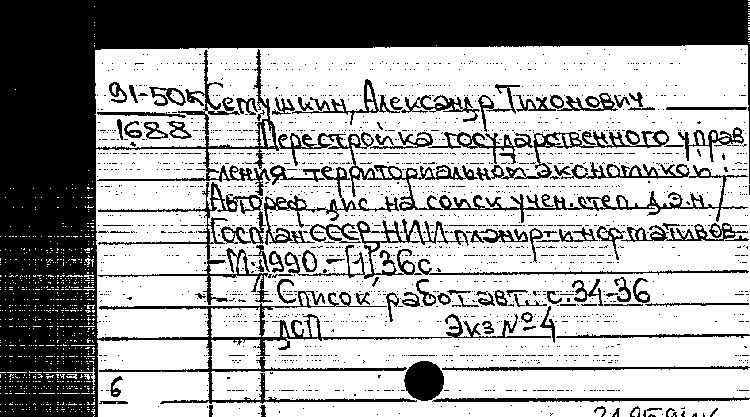 91-50к Сетушкин, Александр Тихонович
1688 Перестройка государственного управ
ления территориальной экономикой :
Автореф. дис на соиск учен. степ. д.э.н. /
Госплан СССР, НИИ планир-и нормативов.
-М. 1990. -[1] 36с.
Список работ авт.: с.34-36
ДСП Экз №4
6